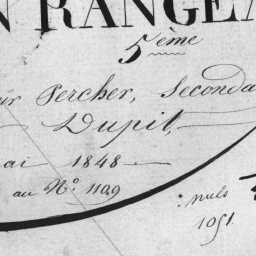 N RANGEM
5ème
ir Percher, Seconda
Dupit,
ai 1848
au No. 1109
: nuls
1051